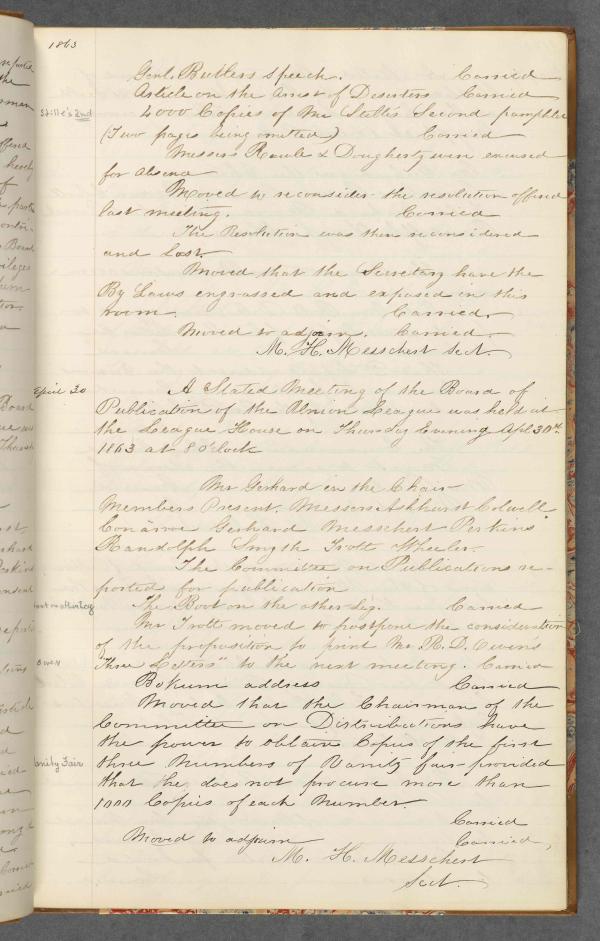 1863
Genl. Butlers speech. Carried
Article on the Arrest of Deserters Carried
Stillé's 2nd
4000 Copies of Mr Stillés Second pamphlet
(Two pages being omitted) Carried
Messers Rawle & Dougherty were excused
for absence
Moved to reconsider the resolution offered
last meeting. Carried
The Resolution was then reconsidered
and Lost.
Moved that the Secretary have the
By Laws engrossed and exposed in this
room. Carried.
Moved to adjourn. Carried.
M. H. Messchert Sect.
April 30
A Stated Meeting of the Board of
Publication of the Union League was held at
the League House on Thursday Evening Apl 30th
1863 at 8 o'clock
Mr Gerhard in the Chair
Members Present. Messers Ashhurst Colwell
Gerhard Messchert Perkins
Randolph Smyth Trott Wheeler.
The Committee on Publications re-
ported for publication
Boot on other Leg
The Boot on the other Leg. Carried
Mr Trott moved to postpone the consideration
of the proposition to print Mr. R. D. Owen's
Owen
"Three Letters" to the next meeting. Carried
Bokum address Carried
Moved that the Chairman of the
Committee on Distributions have
the power to obtain Copies of the first
Vanity Fair
three Numbers of Vanity fair provided
that he does not procure more than
1000 Copies of each Number.
Carried
Moved to adjourn Carried,
M. H. Messchert
Sect.